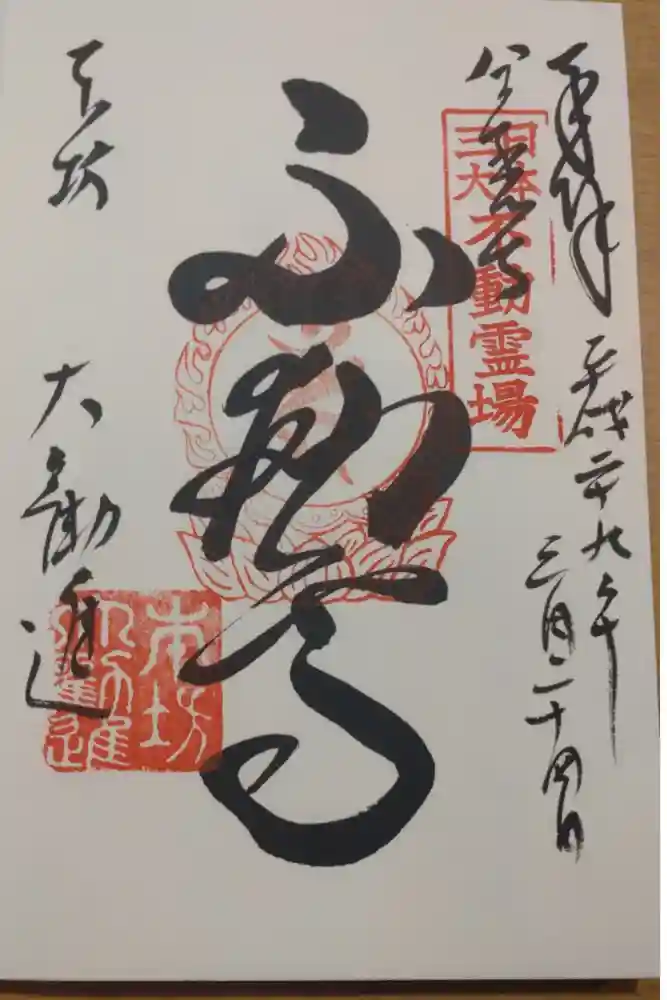 奉拝
平成二十九年
三月二十四日
善光寺
日本
三大
不動霊場
不動尊
本坊
大勧進
本坊
大勧進